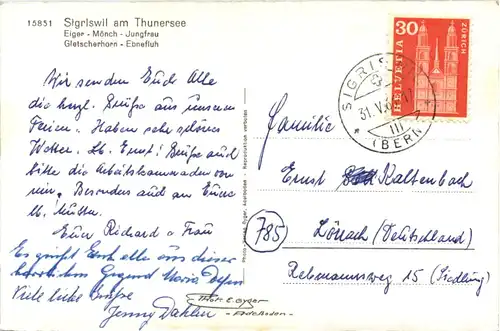 15851 Sigriswil am Thunersee
Eiger - Mönch - Jungfrau
Gletscherhorn - Ebnefluh
Wir senden Euch Alle
die herzl. Grüße aus unseren
Ferien. Haben sehr schönes
Wetter. Lb. Ernst! Grüße auch
bitte die Arbeitskameraden von
mir. Besonders auch an Eure
lb. Mutter.
Euer Richard u Frau
Es grüßt Euch alle aus dieser
herrlichen Gegend Maria
Viele liebe Grüße
Jenny Dahler
Reproduktion verboten
30
HELVETIA
ZÜRICH
SIGRISWIL
31.V.6
(BERN)
Familie
Ernst Kaltenbach
785
Lörrach (Deutschland)
Rebmannsweg 15 (Siedlung)
Gyger
Adelboden